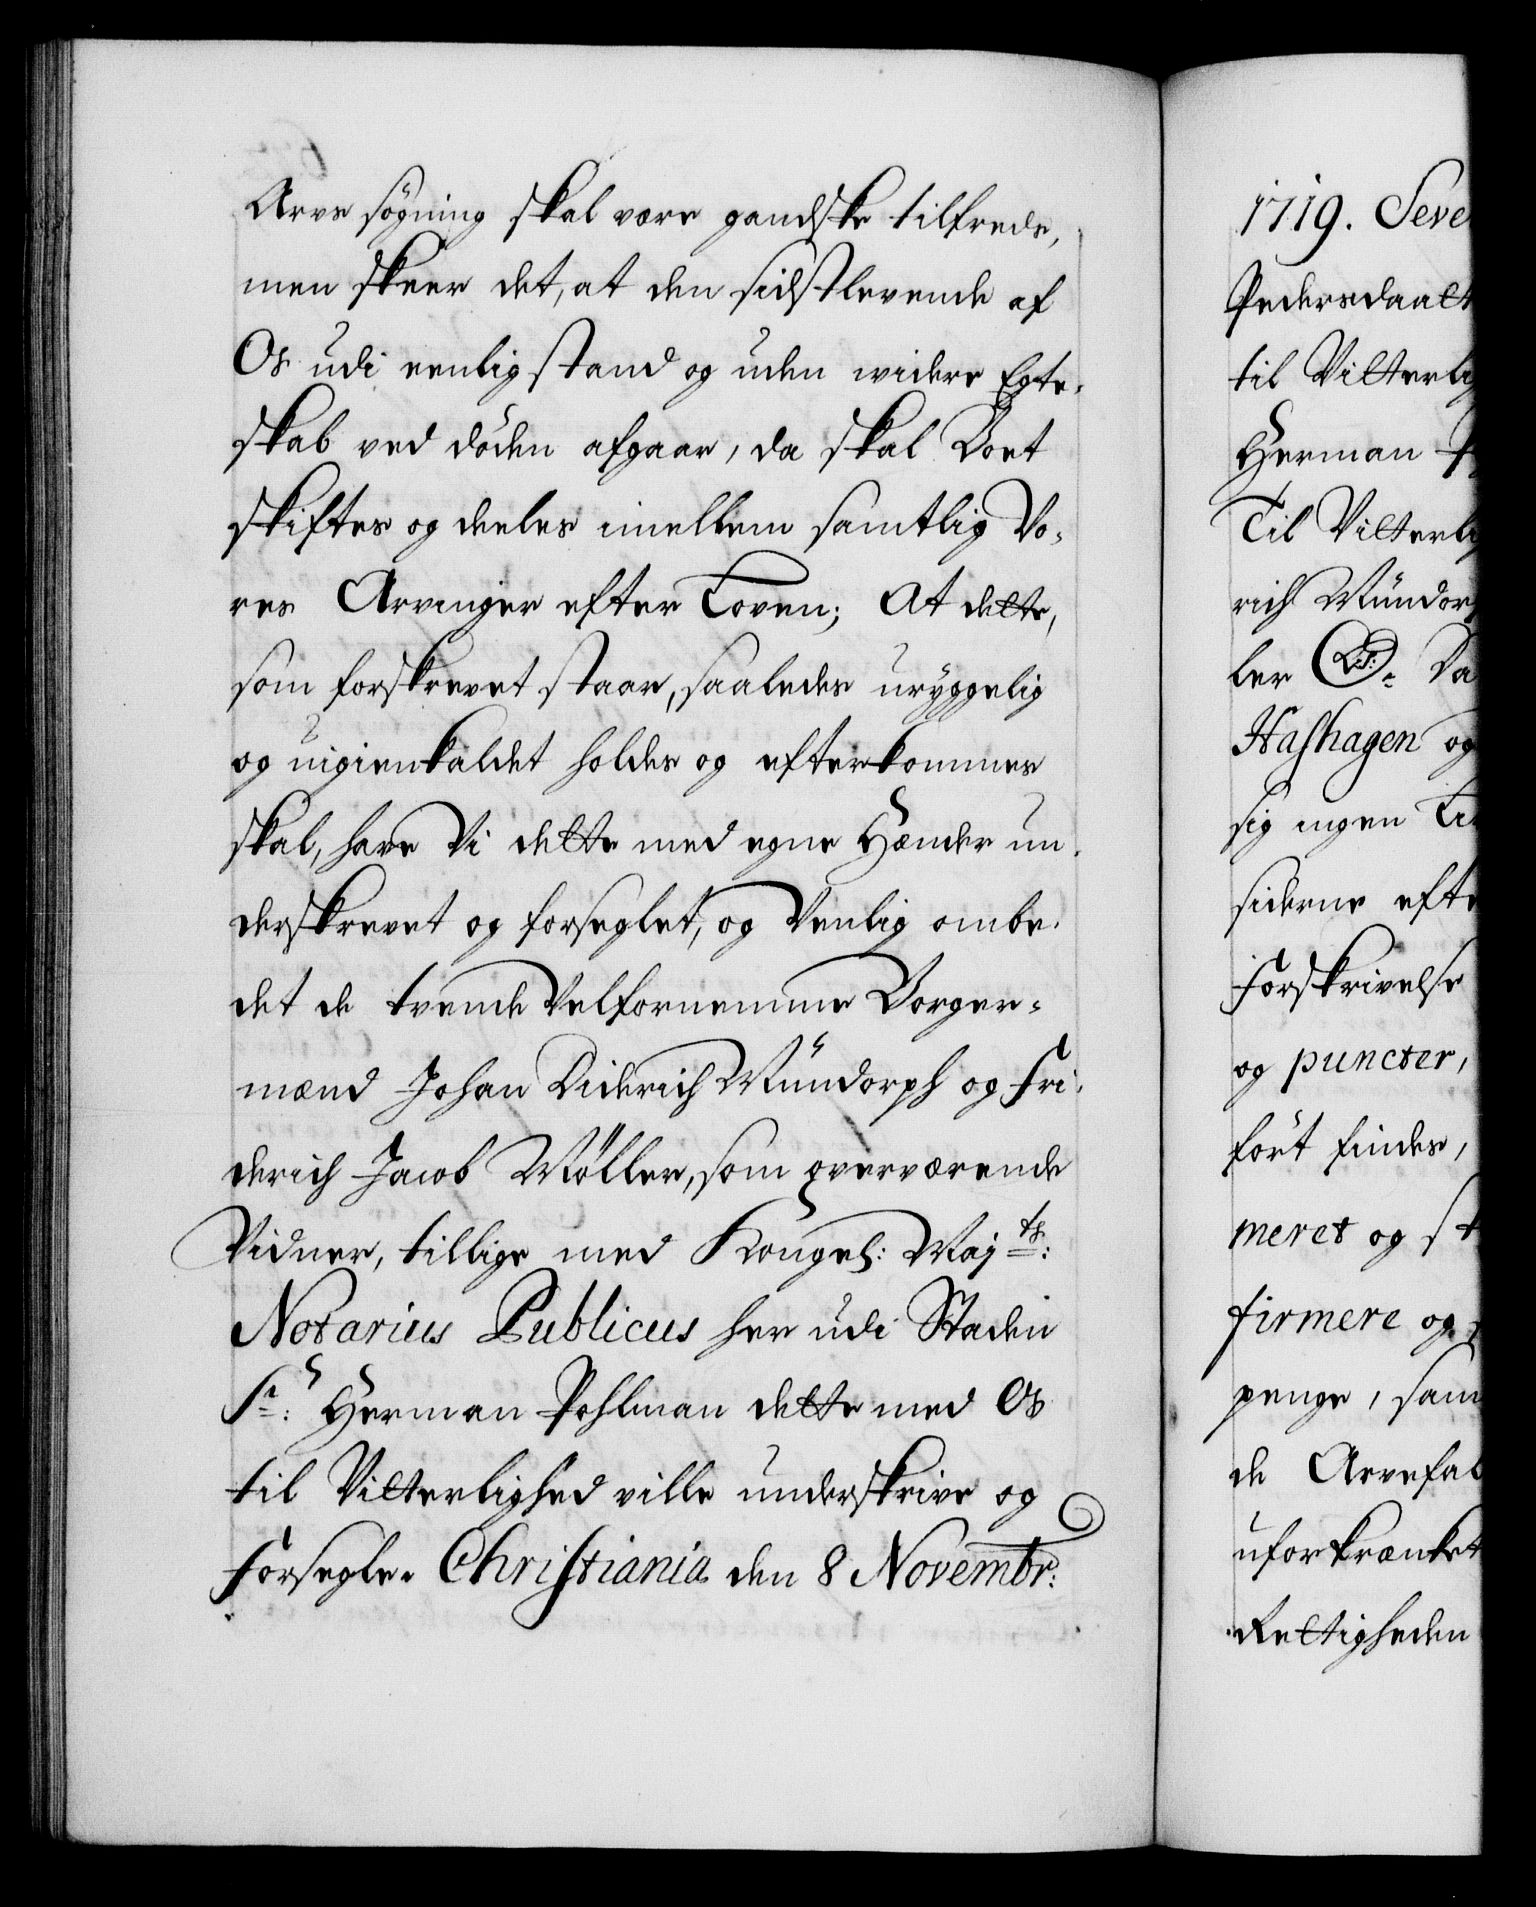 Arve søgning skal være gandske tilfreds,
men skeer det, at den sidstlevende af
Os udi eenlig stand og uden widere Egte-
skab ved döden afgaar, da skal Boet
skiftes og deeles imellem samtlig Vo-
res Arvinger efter Loven; At dette,
som forskrevet staar, saaledes uryggelig
og uigienkaldet holdes og efterkommes
skal, have Vi dette med egne Hænder un-
derskrevet og forseglet, og Venlig ombe-
det de tvende Velfornemme Borger-
mænd Johan Diderich Mündorph og Fri-
derich Jacob Møller, som overværende
Vidner, tillige med Kongel: Majts:
Notarius Publicus her udi Staden
Sr: Herman Pohlman dette med Os
til Vitterlighed ville underskrive og
Forsegle. Christiania den 8 Novembr:
1719. Seve
Pedersdaatt
til Vitterlig
Herman P
Til Vitterlig
rich Mündorp
ler L.S. Da
Hashagen og
sig ingen Li
siderne efte
Forskrivelse
og puncter,
fört findes,
meret og st
firmere og
penge, sam
de Arvefal
uforkrænket
Rettigheden